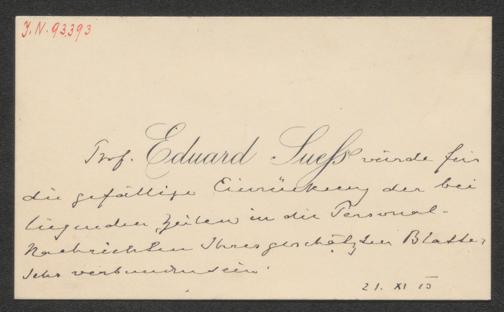 J.N. 93393
Prof. Eduard Suess würde für
die gefällige Einrückung der bei
liegenden Zeilen in die Personal-
Nachrichten Ihres geschätzten Blattes
sehr verbunden sein.
21. XI 10